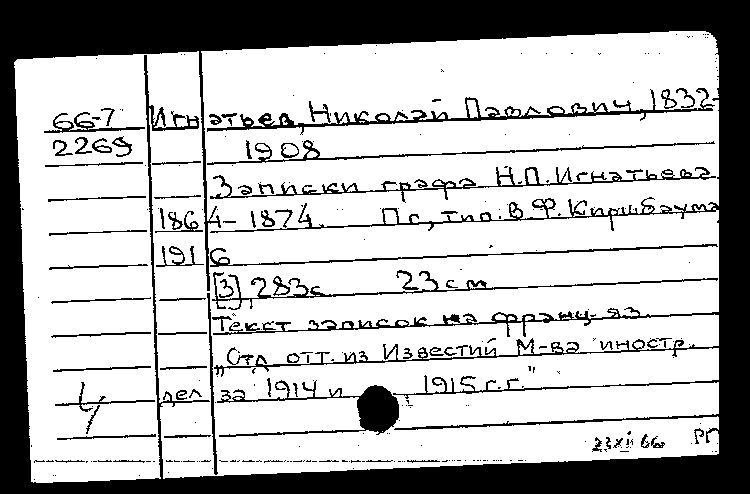 66-7 Игнатьев, Николай Павлович, 1832-
2269 1908
Записки графа Н.П. Игнатьева
1864-1874. Пг, тип. В.Ф. Киршбаума
1916
[3], 283с 23см
Текст записок на франц-яз.
"Отд отт. из Известий М-ва иностр.
дел за 1914 и 1915 г.г."
23 XII 66 РГ